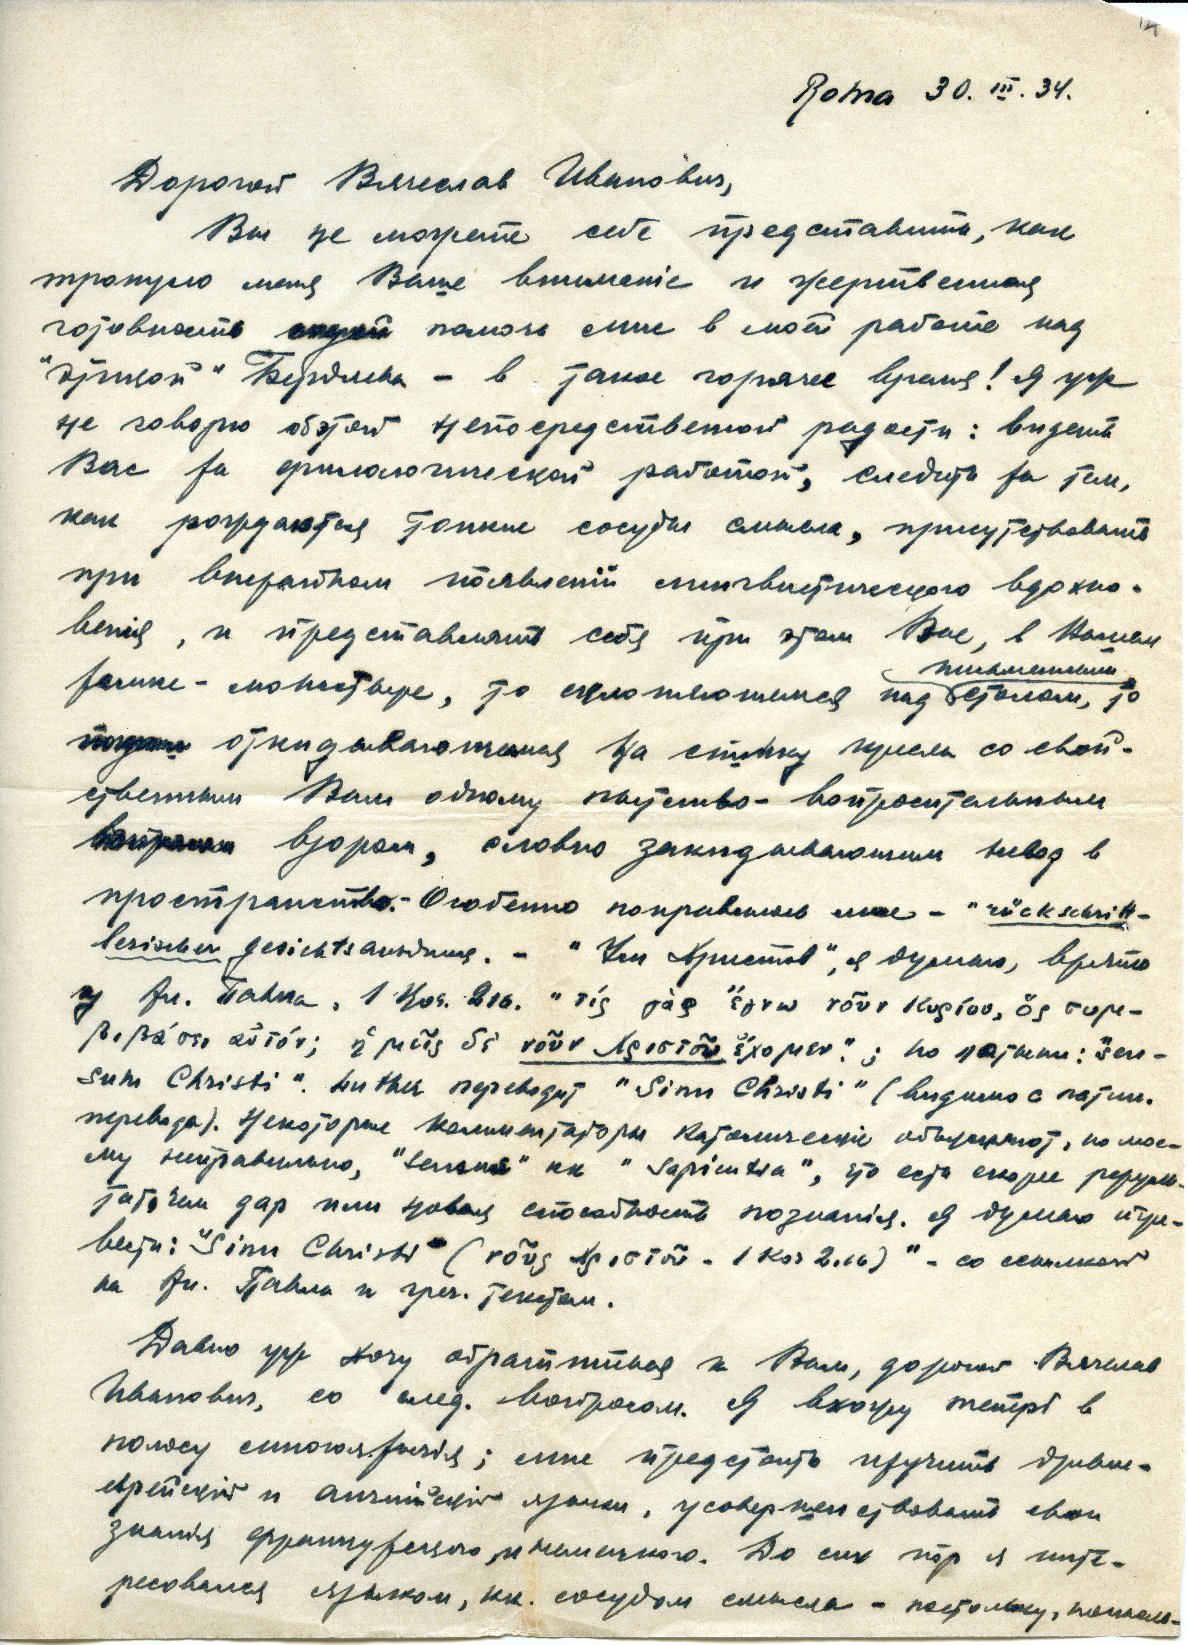 Roma 30. III. 34.
Дорогой Вячеслав Иванович,
Вы не можете себе представить, как
тронуло меня Ваше вниманіе и жертвенная
готовность помочь мне в моей работе над
"этикой" Бердяева – в такое горячее время! Я уж
не говорю об этой непосредственной радости: видеть
Вас за филологической работой, следить за тем,
как рождаются тонкие сосуды смысла, присутствовать
при внезапном появленіи лингвистического вдохно-
венія, и представлять себе при этом Вас, в Вашем
замке-монастыре, то склоняющимся над письменным столом, то
откидывающимся на спинку кресла со свой-
ственным Вам одному вопросительным
взором, словно закидывающим невод в
пространство. – Особенно понравилось мне – "rückschritt-
lerischer Gesichtsausdruck. – "Ум Христов", я думаю, взято
у Ап. Павла, 1 Кор. 2.16. "τίς γὰρ ἔγνω νοῦν Κυρίου, ὃς συμ-
βιβάσει αὐτόν; ἡμεῖς δὲ νοῦν Χριστοῦ ἔχομεν."; по латыни: "sen-
sum Christi". Luther переводит "Sinn Christi" (видимо с латин.
перевода). Некоторые комментаторы католическіе объясняют, по мое-
му неправильно, "sensus" кк "sapientia", что есть скорее резуль-
тат, чем дар или новая способность познанія. Я думаю пере-
вести: "Sinn Christi (νοῦς Χριστοῦ – 1 Kor 2.16)" – со ссылкой
на Ап. Павла и греч. текстом.
Давно уж хочу обратиться к Вам, дорогой Вячеслав
Иванович, со след. вопросом. Я вхожу теперь в
полосу многоязычія; мне предстоит изучить древне-
еврейскій и англійскій языки, усовершенствовать свои
знанія французского и немецкого. До сих пор я инте-
ресовался языком, кк. сосудом смысла – постольку, посколь-